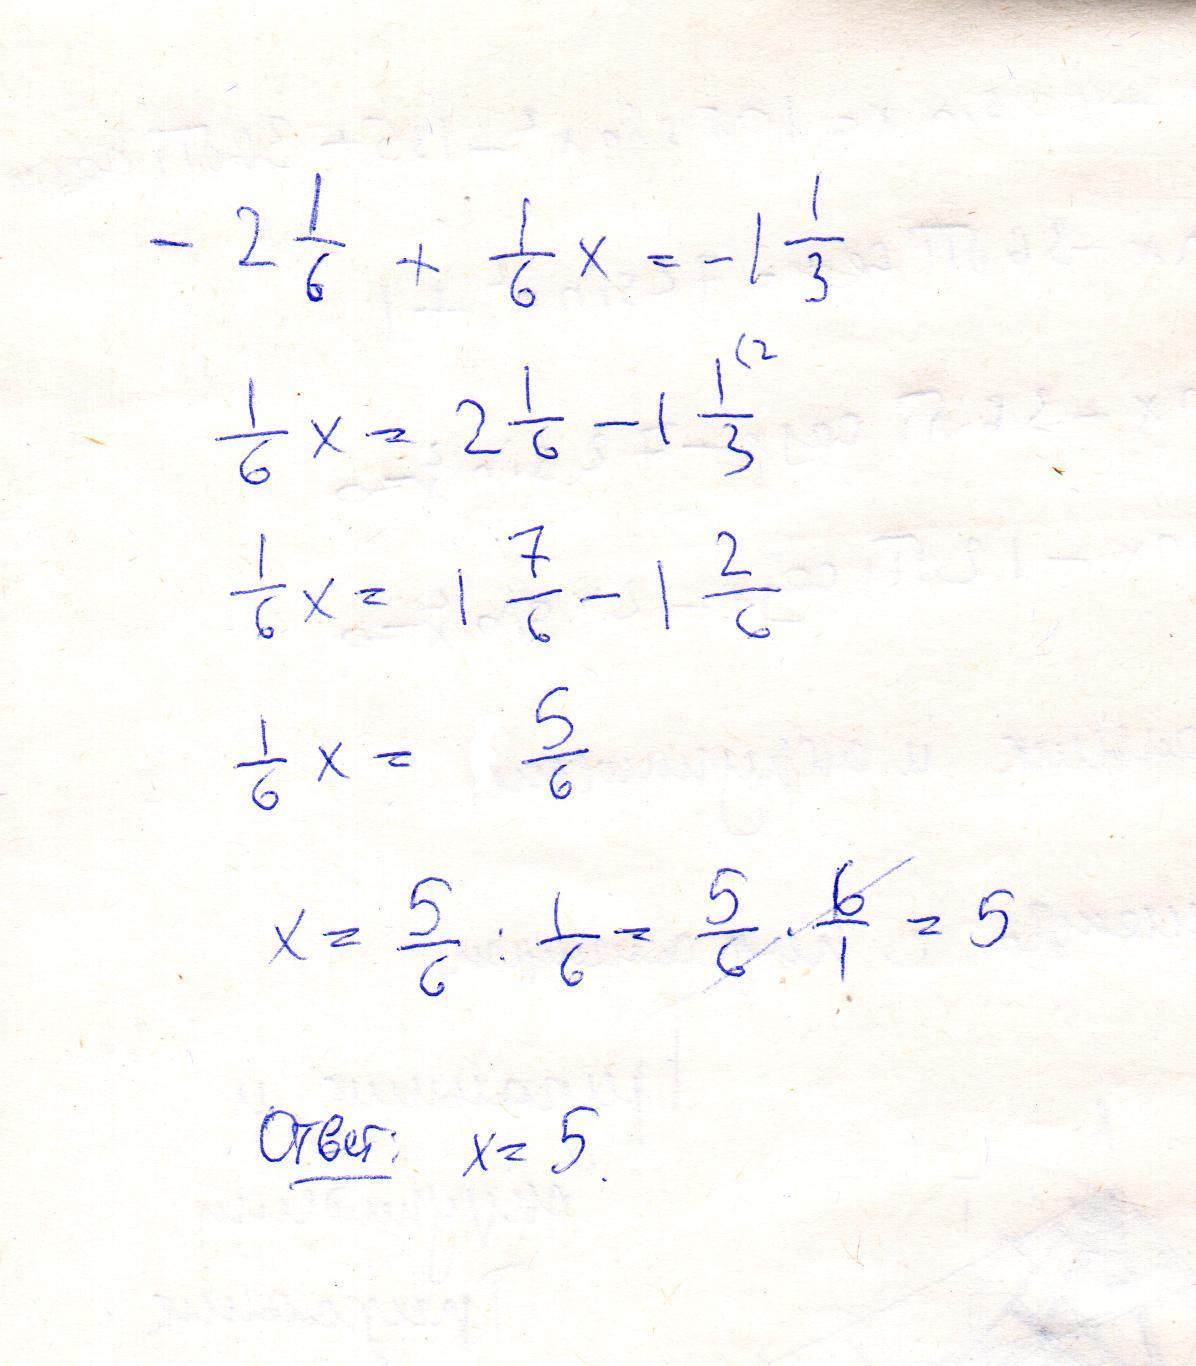 - 2 1/6 + 1/6 x = -1 1/3
1/6 x = 2 1/6 - 1 1/3 (2
1/6 x = 1 7/6 - 1 2/6
1/6 x = 5/6
x = 5/6 : 1/6 = 5/6 · 6/1 = 5
Ответ: x = 5.